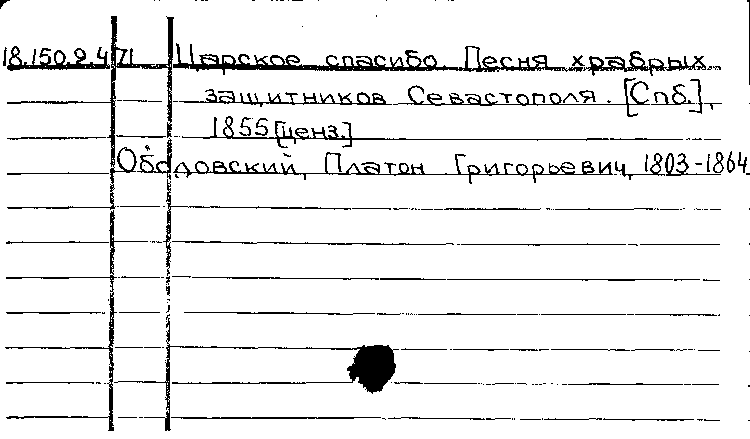 18.150.9.471 Царское спасибо. Песня храбрых
защитников Севастополя. [Спб.],
1855 [ценз.]
Ободовский, Платон Григорьевич, 1803-1864